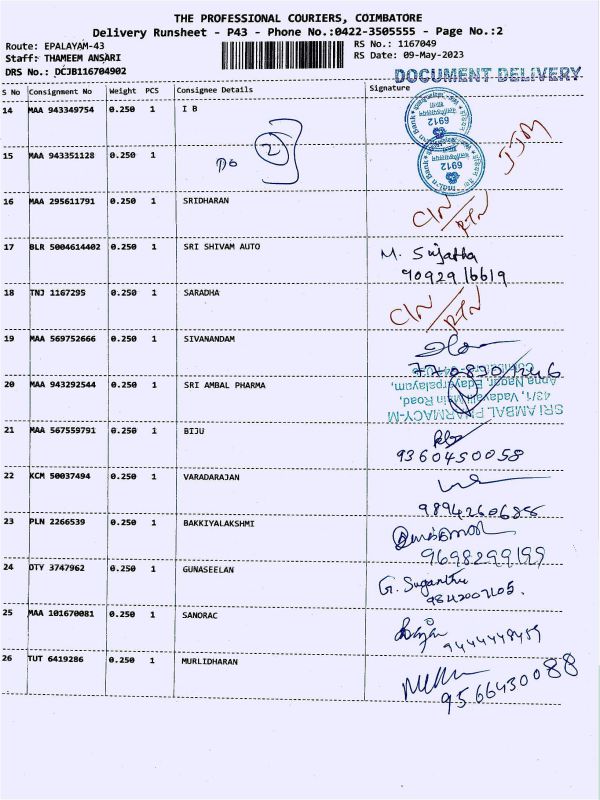 THE PROFESSIONAL COURIERS, COIMBATORE
Delivery Runsheet - P43 - Phone No.:0422-3505555 - Page No.:2
Route: EPALAYAM-43
RS No.: 1167049
Staff: THAMEEM ANSARI
RS Date: 09-May-2023
DRS No.: DCJB116704902
DOCUMENT DELIVERY
S No Consignment No Weight PCS Consignee Details Signature
14 MAA 943349754 0.250 1 I B
6912
DO 2
JJM
15 MAA 943351128 0.250 1
6912
16 MAA 295611791 0.250 1 SRIDHARAN
CIN/RTN
17 BLR 5004614402 0.250 1 SRI SHIVAM AUTO
M. Sujatha
9092916619
18 TNJ 1167295 0.250 1 SARADHA
CIN/RTN
19 MAA 569752666 0.250 1 SIVANANDAM
20 MAA 943292544 0.250 1 SRI AMBAL PHARMA
SRI AMBAL PHARMACY-M
43/1, Vadavalli Main Road,
Anna Nagar, Edayarpalayam,
21 MAA 567559791 0.250 1 BIJU
9360450058
22 KCM 50037494 0.250 1 VARADARAJAN
23 PLN 2266539 0.250 1 BAKKIYALAKSHMI
9698299199
24 OTY 3747962 0.250 1 GUNASEELAN
G. Suganthi
25 MAA 101670081 0.250 1 SANORAC
26 TUT 6419286 0.250 1 MURLIDHARAN
9566430088